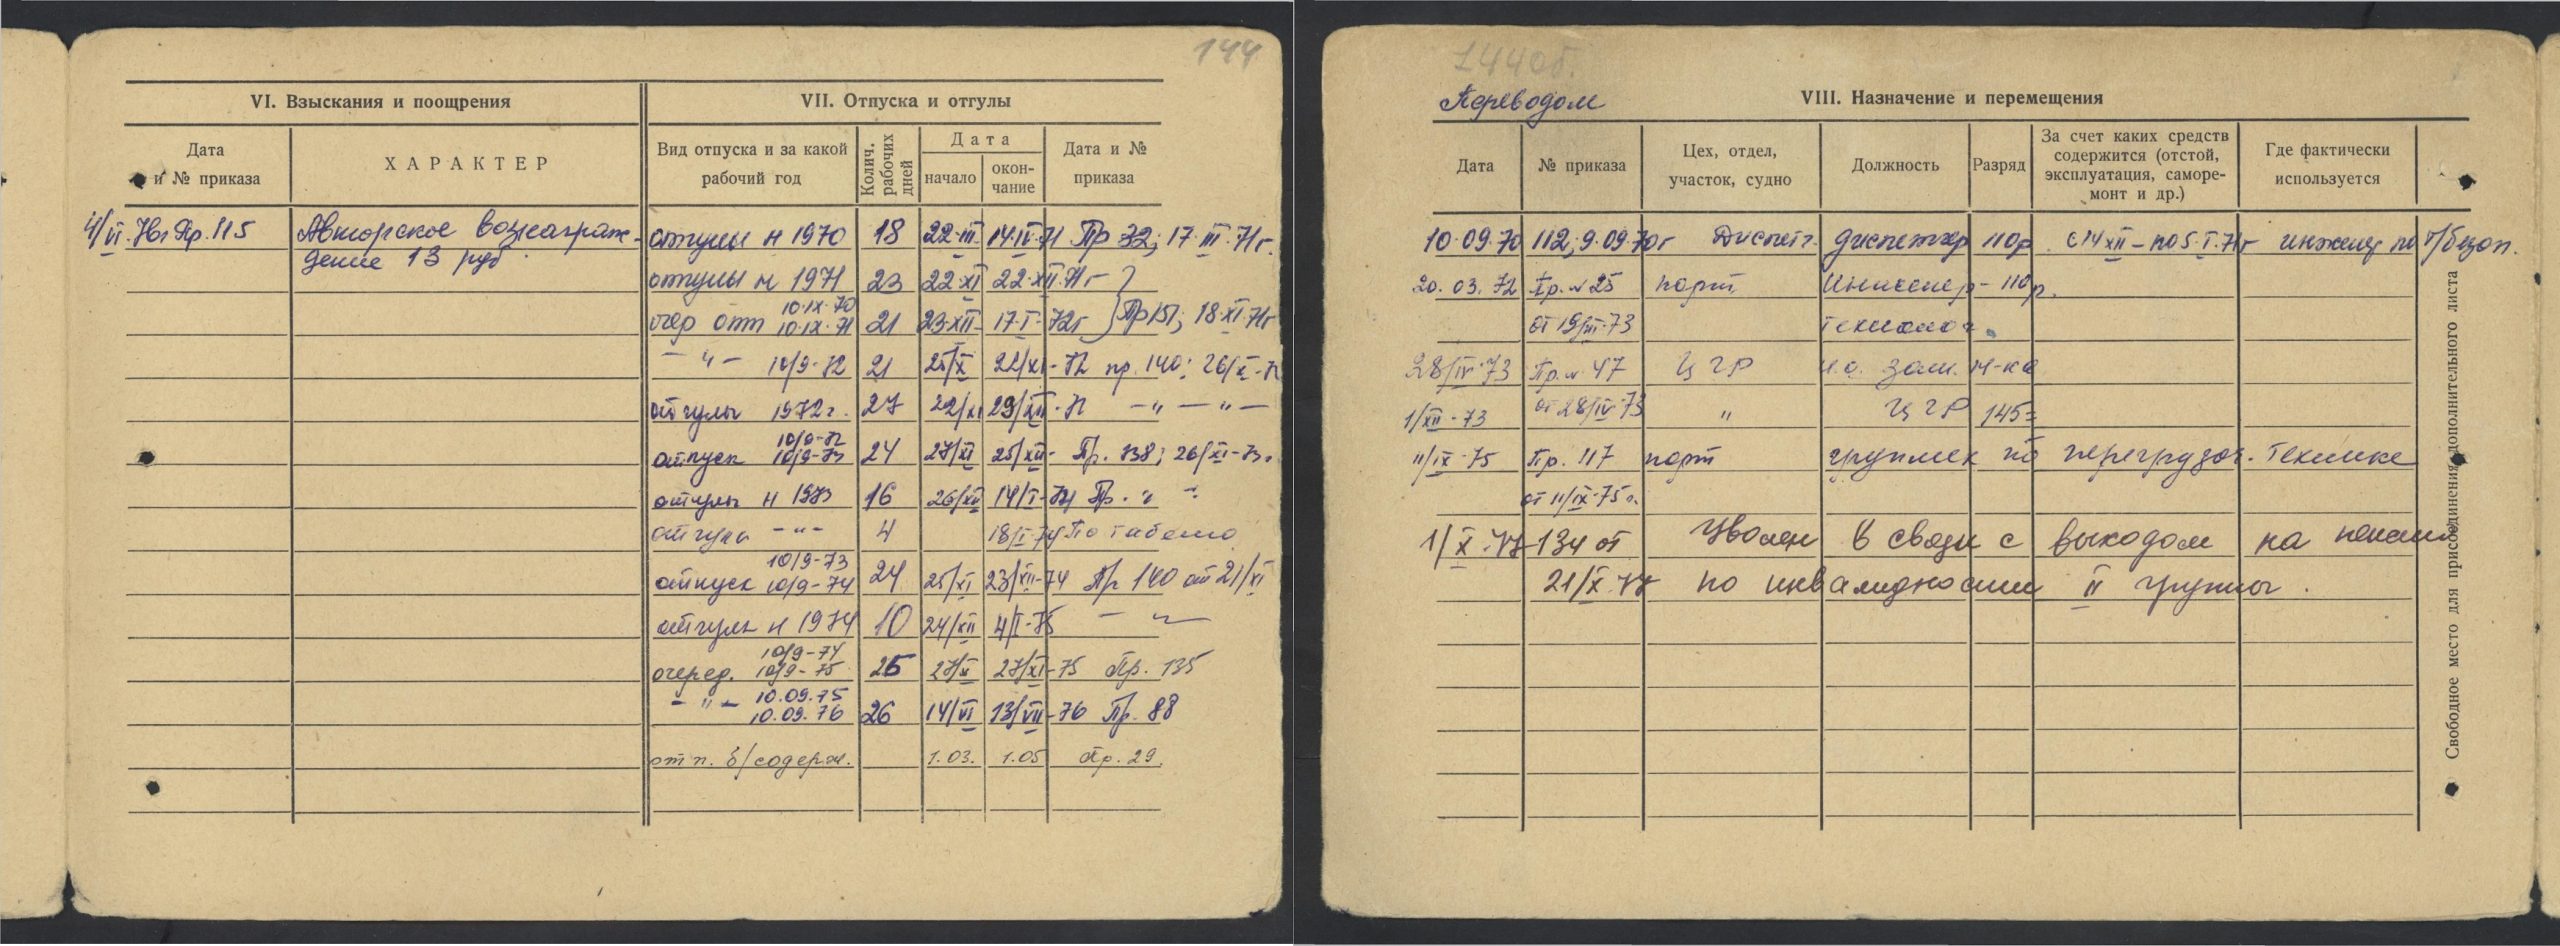 144
VI. Взыскания и поощрения
VII. Отпуска и отгулы
Дата и № приказа
ХАРАКТЕР
Вид отпуска и за какой рабочий год
Колич. рабочих дней
Дата
начало
окончание
Дата и № приказа
4/VI. Пр. 115 Авторское вознаграж-
дение 13 руб.
отгулы н 1970 18 22·III 14·IV·71 Пр 32; 17·III·71г.
отгулы н 1971 23 22·XI 22·XII·71г
очер отп 10·IX·70 10·IX·71 21 23·XII- 17·I-72г Пр 151; 18·XI·71г
-"- 10/9-72 21 25/X 22/XI-72 пр. 140; 26/X-72
отгулы 1972г. 27 22/XI 29/XII-72 -"-"-
отпуск 10/9-72 10/9-73 24 27/XI 25/XII- Пр. 138; 26/XI-73г.
отгулы н 1973 16 26/XII 14/I-74 Пр. " "
отгулы -"- 4 18/I-74 По табелю
отпуск 10/9-73 10/9-74 24 25/XI 23/XII-74 Пр 140 от 21/XI
отгулы н 1974 10 24/XII 4/I-75 - " -
очеред. 10/9-74 10/9-75 25 27/X 27/XI-75 Пр. 135
-"- 10.09.75 10.09.76 26 14/VI 13/VII-76 Пр. 88
отп. б/содерж. 1.03. 1.05 Пр. 29.
144об.
Переводом
VIII. Назначение и перемещения
Дата
№ приказа
Цех, отдел, участок, судно
Должность
Разряд
За счет каких средств содержится (отстой, эксплуатация, саморемонт и др.)
Где фактически используется
10·09·70 112; 9·09·70г Диспетч. диспетчер 110р с 14 XII - по 5·I·71г инженер по т/безоп.
20.03.72 Пр. № 25 порт Инженер- 110р.
от 19/III-73 технолог
28/IV-73 Пр. № 47 ЦГР и.о. зам. н-ка
1/XII-73 от 28/IV-73 " ЦГР 145=
11/IX-75 Пр. 117 порт групмех по перегрузоч. технике
от 11/IX-75г.
1/X-77 134 от Уволен в связи с выходом на пенсию
21/X-77 по инвалидности II группы.
Свободное место для присоединения дополнительного листа